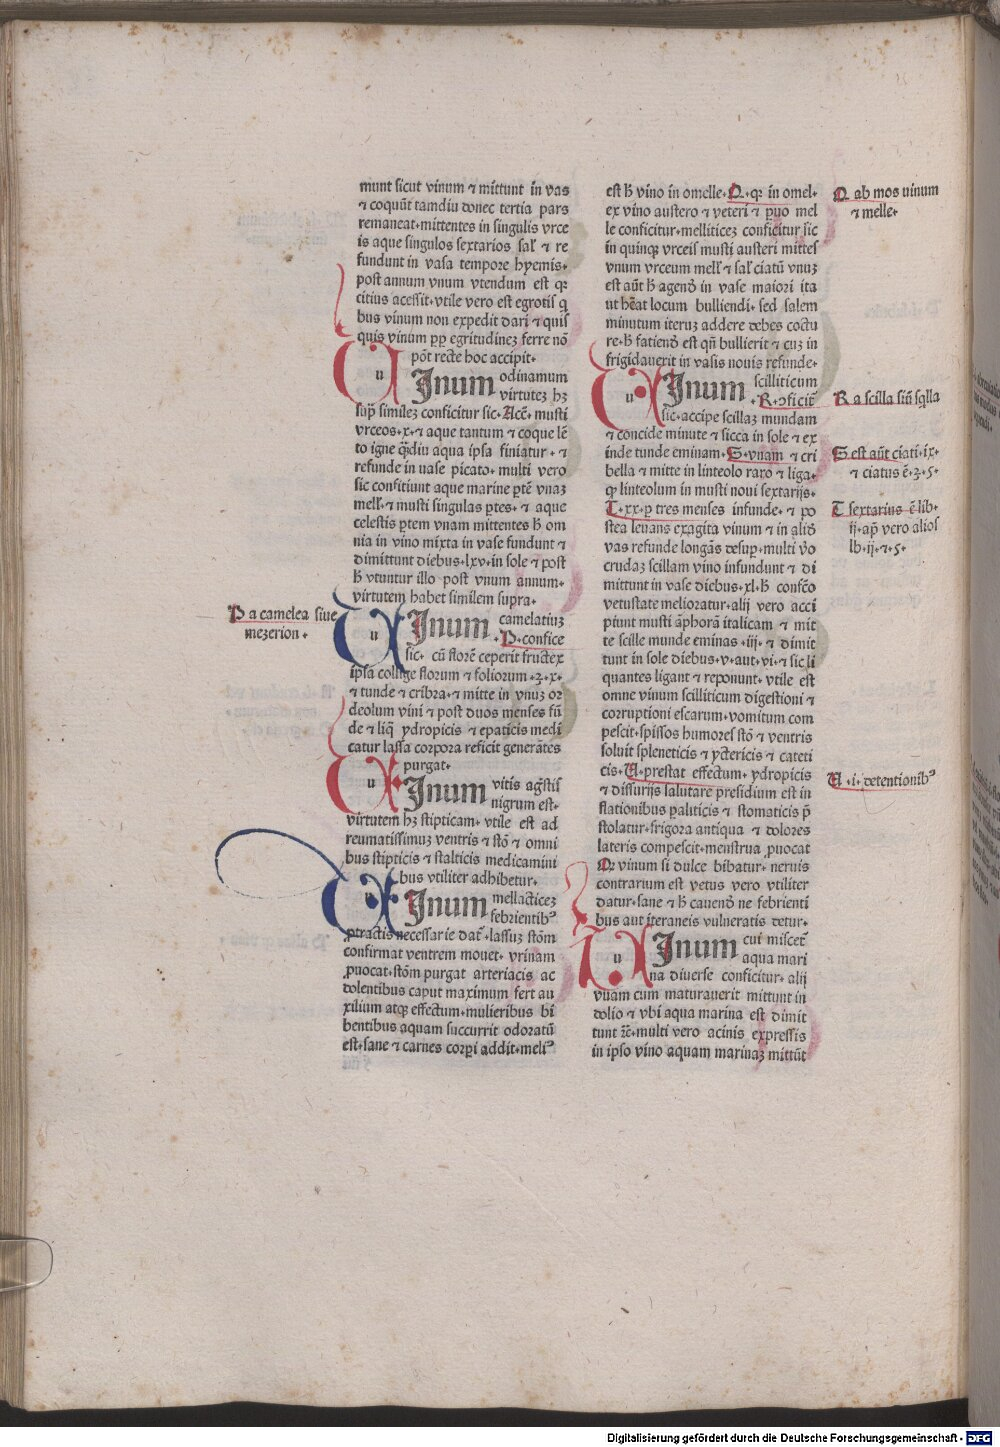 munt sicut vinum ⁊ mittunt in vas
⁊ coquūt tamdiu donec tertia pars
remaneat·mittentes in singulis vrce
is aque singulos sextarios sal' ⁊ re
fundunt in vasa tempore hyemis·
post annum vnum vtendum est qꝛ
citius acessit·vtile vero est egrotis q̄
bus vinum non expedit dari ⁊ quis
quis vinum ꝓp egritudineꝫ ferre nō
pōt recte hoc accipit·
u
VInum odinamum
virtuteꝫ hꝫ
sup̄ similem conficitur sic·Acē· musti
vrceos·x·⁊ aque tantum ⁊ coque lē
to igne q̄diu aqua ipsa finiatur·⁊
refunde in uase picato·multi vero
sic confitiunt aque marine ꝑtē vnaꝫ
mell'·⁊ musti singulas ꝑtes·⁊ aque
celestis ꝑtem vnam mittentes h̄ om
nia in vino mixta in vase fundunt ⁊
dimittunt diebus·lxv·in sole ⁊ post
h̄ vtuntur illo post vnum annum·
virtutem habet similem supra·
P a camelea siue
mezerion·
u
VInum camelatiuꝫ
·P·confice
sic· cū florē ceperit fructex
ipsa collige florum ⁊ foliorum·ʒ·x·
⁊ tunde ⁊ cribra·⁊ mitte in vnuꝫ or
deolum vini ⁊ post duos menses fū
de ⁊ liq̄ ydropicis ⁊ epaticis medi
catur lassa corpora reficit generātes
purgat·
u
VInum vitis ag̅stis
nigrum est·
virtutem hꝫ stipticam·vtile est ad
reumatissimuꝫ ventris ⁊ stō ⁊ omni
bus stipticis ⁊ stalticis medicamini
bus vtiliter adhibetur·
u
VInum mellacticeꝫ
febrientibꝰ
ꝓtractis necessarie dat̄·lassuꝫ stōm
confirmat ventrem mouet·vrinam
ꝓuocat·stōm purgat arteriacis ac
dolentibus caput maximum fert au
xilium atqꝫ effectum·mulieribus bi
bentibus aquam succurrit odoratū
est·sane ⁊ carnes corꝑi addit·meliꝰ
est h̄ vino in omelle·Q·qꝛ in omel·
ex vino austero ⁊ veteri ⁊ puo mel
le conficitur·melliticeꝫ conficitur sic
in quinqꝫ vrceis musti austeri mittes
vnum vrceum mell' ⁊ sal' ciatū vnuꝫ
est aūt h̄ agend̄o in vase maiori ita
ut hēat locum bulliendi·sed salem
minutum iteruꝫ addere debes coctu
re·h̄ fatiend̄o est qn̄ bullierit ⁊ cuꝫ in
frigidauerit in vasis nouis refunde·
Q ab mos uinum
⁊ melle·
u
VInum scilliticum
·R·ↄficit̄
sic·accipe scillaꝫ mundam
⁊ concide minute ⁊ sicca in sole ⁊ ex
inde tunde eminam·S·vnam ⁊ cri
bella ⁊ mitte in linteolo raro ⁊ liga·
qꝫ linteolum in musti noui sextarijs·
T·xx·ꝑ tres menses infunde·⁊ po
stea leuans exagita vinum ⁊ in aliō
vas refunde longās desuꝑ·multi v̄o
crudaꝫ scillam vino infundunt ⁊ di
mittunt in vase diebus·xl·h̄ confc̄o
vetustate melioratur·alij vero acci
piunt musti āphorā italicam ⁊ mit
te scille munde eminas ·iij· ⁊ dimit
tunt in sole diebus·v·aut·vi·⁊ sic li
quantes ligant ⁊ reponunt·vtile est
omne vinum scilliticum digestioni ⁊
corruptioni escarum·vomitum com
pescit·spissos humores stō ⁊ ventris
soluit spleneticis ⁊ yctericis ⁊ cateti
cis·U·prestat effectum·ydropicis
⁊ dissurijs salutare presidium est in
flationibus paliticis ⁊ stomaticis p̄
stolatur·frigora antiqua ⁊ dolores
lateris compescit·menstrua ꝓuocat
Qꝛ vinum si dulce bibatur·neruis
contrarium est vetus vero vtiliter
datur·sane ⁊ h̄ cauend̄o ne febrienti
bus aut iteraneis vulneratis detur·
R a scilla siū sq̄lla
S est aūt ciati·ix·
⁊ ciatus ē·ʒ·5·
T sextarius ē lib·
ij·ap̄ vero alios
lb·ij·⁊·5·
U ·i· detentionibꝰ
u
VInum cui miscet̄
aqua mari
na diuerse conficitur·alij
vuam cum maturauerit mittunt in
dolio ⁊ vbi aqua marina est dimit
tunt r̄c·multi vero acinis expressis
in ipso vino aquam marinaꝫ mittūt
Digitalisierung gefördert durch die Deutsche Forschungsgemeinschaft - DFG